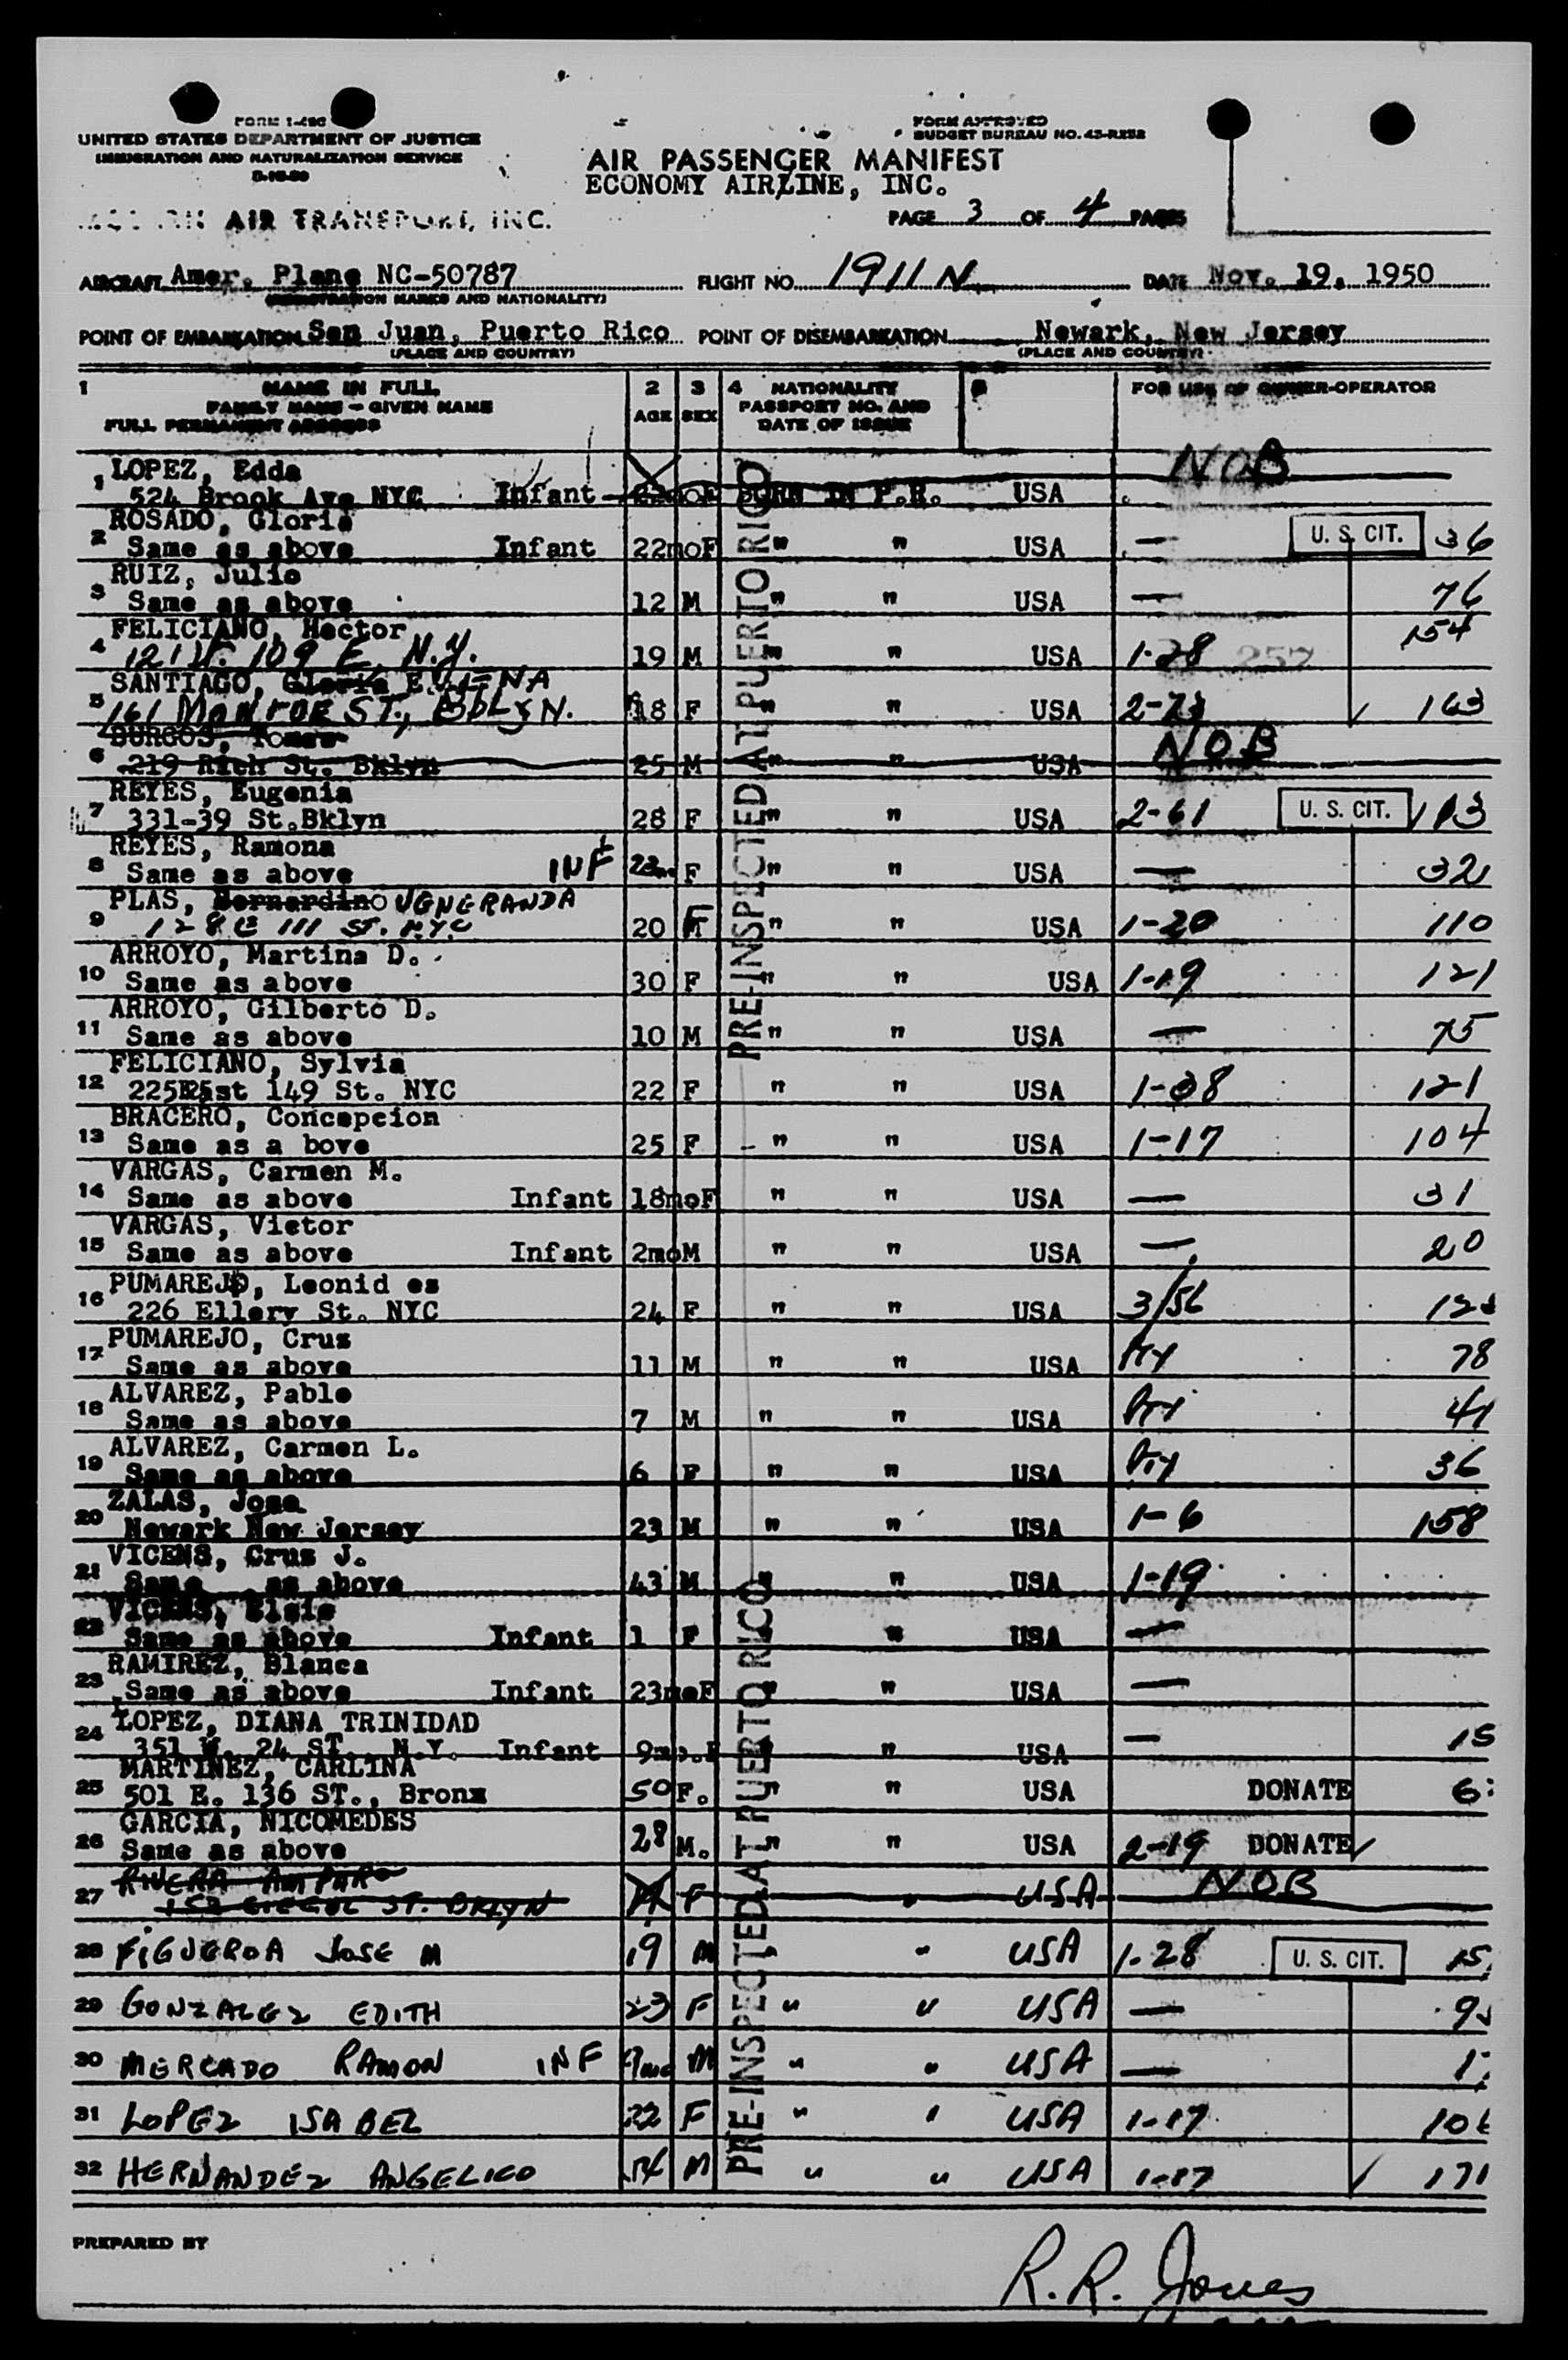 FORM I-466
UNITED STATES DEPARTMENT OF JUSTICE
IMMIGRATION AND NATURALIZATION SERVICE
FORM APPROVED
BUDGET BUREAU NO. 43-R252
AIR PASSENGER MANIFEST
ECONOMY AIRLINE, INC.
AIR TRANSPORT, INC.
PAGE 3 OF 4 PAGES
AIRCRAFT Amer. Plane NC-50787 FLIGHT NO. 1911N DATE Nov. 19, 1950
(REGISTRATION MARKS AND NATIONALITY)
POINT OF EMBARKATION San Juan, Puerto Rico POINT OF DISEMBARKATION Newark, New Jersey
(PLACE AND COUNTRY) (PLACE AND COUNTRY)
1 NAME IN FULL 2 3 4 NATIONALITY FOR USE OF OWNER-OPERATOR
FAMILY NAME - GIVEN NAME AGE SEX PASSPORT NO. AND
FULL PERMANENT ADDRESS DATE OF ISSUE
1 LOPEZ, Edda NOB
524 Brook Ave NYC Infant F BORN IN P.R. USA
2 ROSADO, Gloria
Same as above Infant 22mo F " " USA — U. S. CIT. 36
3 RUIZ, Julio
Same as above 12 M " " USA — 76
4 FELICIANO, Hector 154
121 109 E. N.Y. 19 M " " USA 1-28 257
5 SANTIAGO, Gloria
161 MONROE ST., BKLYN. 18 F " " USA 163
6 BURGOS, NOB
219 Rich St. Bklyn 25 M " " USA
7 REYES, Eugenia
331-39 St.Bklyn 28 F " " USA 2-61 U. S. CIT. 113
8 REYES, Ramona
Same as above INF F " " USA — 32
9 PLAS, Bernardino VENERANDA
128 E 111 ST. N.Y.C 20 F " " USA 1-20 110
10 ARROYO, Martina D.
Same as above 30 F " " USA 1-19 121
11 ARROYO, Gilberto D.
Same as above 10 M " " USA — 75
12 FELICIANO, Sylvia
East 149 St. NYC 22 F " " USA 1-38 121
13 BRACERO, Concepcion
Same as a bove 25 F " " USA 1-17 104
14 VARGAS, Carmen M.
Same as above Infant 18mo F " " USA — 31
15 VARGAS, Victor
Same as above Infant 2mo M " " USA — 20
16 PUMAREJO, Leonid es
226 Ellery St. NYC 24 F " " USA 3/56
17 PUMAREJO, Crus
Same as above 11 M " " USA 78
18 ALVAREZ, Pablo
Same as above 7 M " " USA 41
19 ALVAREZ, Carmen L.
Same as above 6 F " " USA 36
20 ZALAS, Jose
Newark New Jersey 23 M " " USA 1-6 158
21 VICENS, Crus J.
Same as above 43 M " " USA 1-19
22 VICENS, Elsie
Same as above Infant 1 F " " USA —
23 RAMIREZ, Blanca
Same as above Infant 23mo F " " USA —
24 LOPEZ, DIANA TRINIDAD
351 W. 24 ST., N.Y. Infant 9mo. F " " USA — 15
25 MARTINEZ, CARLINA
501 E. 136 ST., Bronx 50 F. " " USA DONATE
26 GARCIA, NICOMEDES
Same as above 28 M. " " USA 2-19 DONATE
27 RIVERA AMPARO NOB
ST. BKLYN F " USA
28 FIGUEROA JOSE M 19 M " " USA 1-28 U. S. CIT.
29 GONZALEZ EDITH 23 F " " USA —
30 MERCADO RAMON INF 9mo M " " USA —
31 LOPEZ ISABEL 22 F " " USA 1-17
32 HERNANDEZ ANGELICO M " " USA 1-17 171
PRE-INSPECTED AT PUERTO RICO
PRE-INSPECTED AT PUERTO RICO
PREPARED BY
R.R. Jones